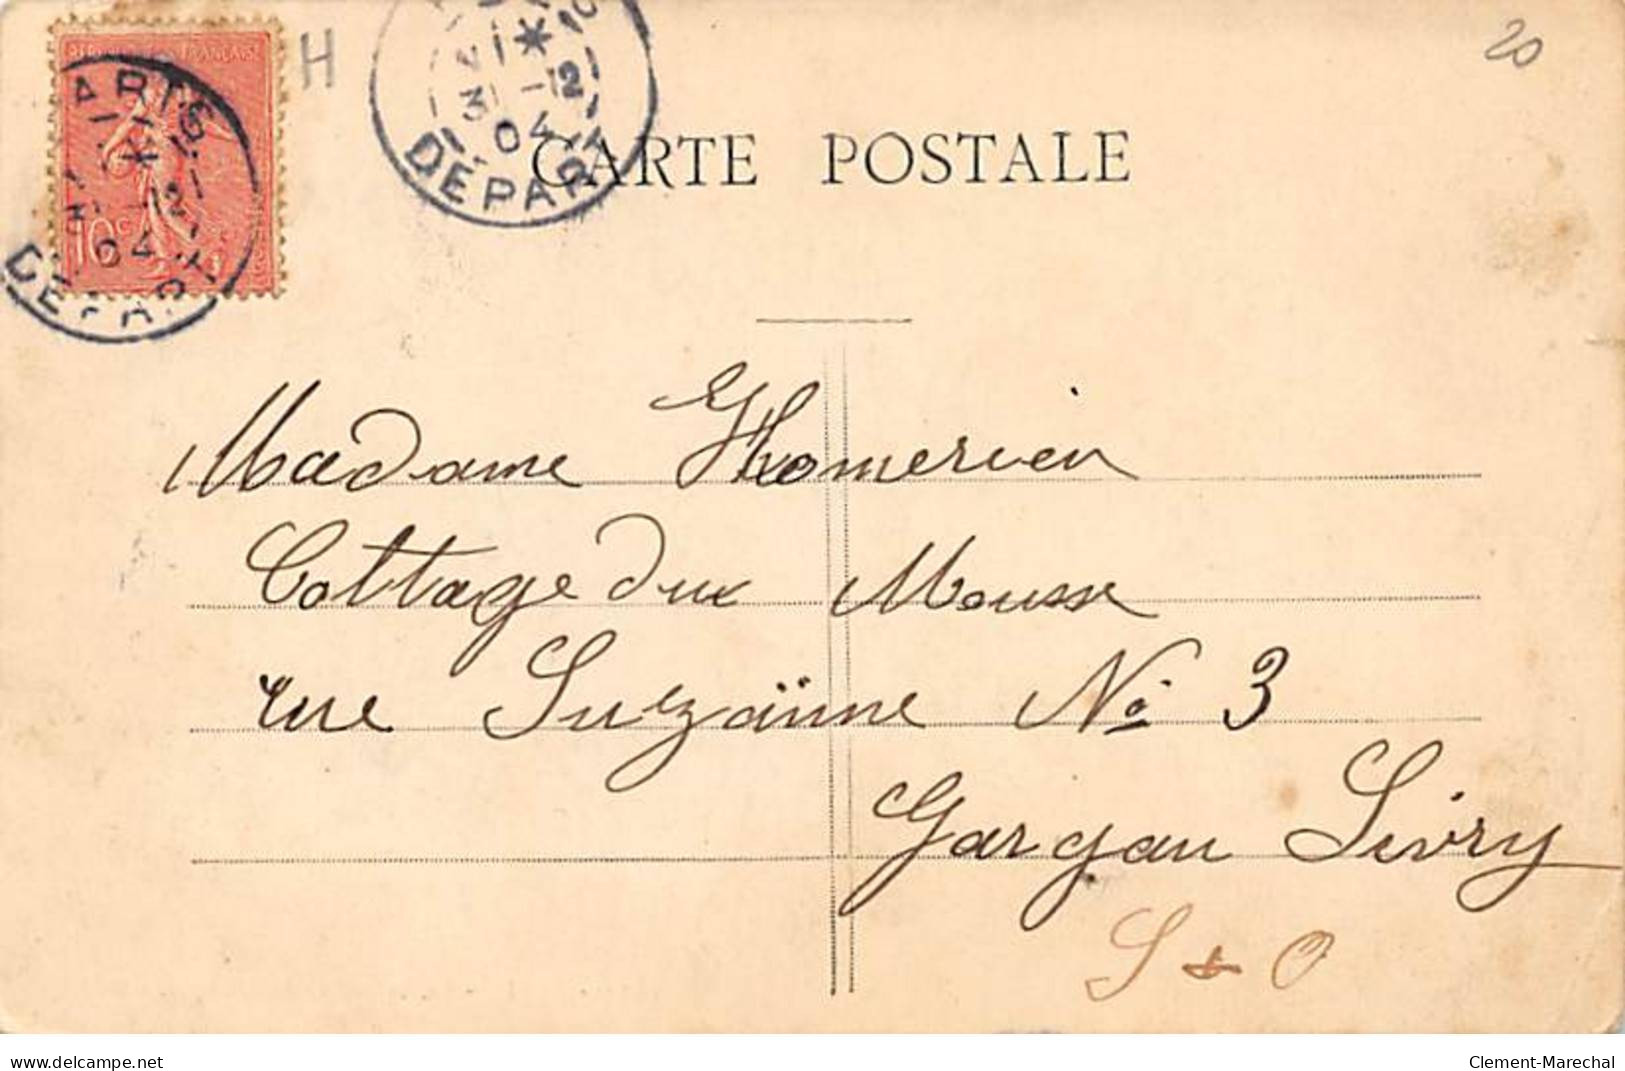 RÉPUBLIQUE FRANÇAISE
10c
PARIS
31 -12
04
DEPART
H
31 -12
04
DEPART
20
CARTE POSTALE
Madame Homerien
Cottage du Mousse
rue Suzänne No 3
Gargan Livry
S & O
delcampe.net
Clement-Marechal